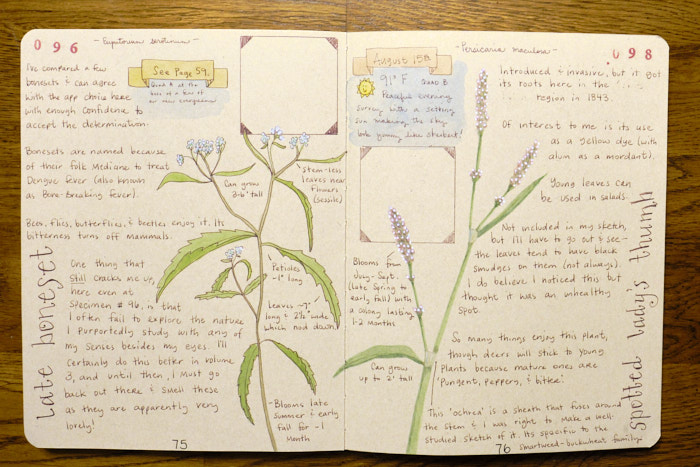 096
- Eupatorium serotinum -
I've compared a few
bonesets & can agree
with the app choice here
with enough confidence to
accept the determination.
See Page 59.
Quad A at the
Bonesets are named because
of their folk medicine to treat
Dengue fever (also known
as Bone-Breaking fever).
Bees, flies, butterflies, & beetles enjoy it. Its
bitterness turns off mammals.
One thing that
still cracks me up,
here even at
specimen #96, is that
I often fail to explore the nature
I purportedly study with any of
my senses besides my eyes. I'll
certainly do this better in volume
3, and until then, I must go
back out there & smell these
as they are apparently very
lovely!
late boneset
Can grow
3-6' tall
Stem-less
leaves near
flowers
(sessile)
Petioles
~1" long
Leaves ~7"
long & 2½" wide
which nod down
Blooms late
summer & early
fall for ~1
month
75
August 15th
91° F QUAD B
Peaceful evening
survey with a setting
sun making the sky
look yummy like sherbert!
- Persicaria maculosa -
098
Introduced & invasive, but it got
its roots here in the
region in 1843.
Of interest to me is its use
as a yellow dye (with
alum as a mordant).
Young leaves can
be used in salads.
Not included in my sketch,
but I'll have to go out & see -
the leaves tend to have black
smudges on them (not always).
I do believe I noticed this but
thought it was an unhealthy
spot.
So many things enjoy this plant,
though deers will stick to young
plants because mature ones are
"pungent, peppery, & bitter."
This 'ochrea' is a sheath that fuses around
the stem & I was right to make a well-
studied sketch of it. Its specific to the
smartweed-buckwheat family.
Blooms from
July-Sept.
(late Spring to
early fall) with
a colony lasting
1-2 months
Can grow
up to 2' tall
spotted lady's thumb
76